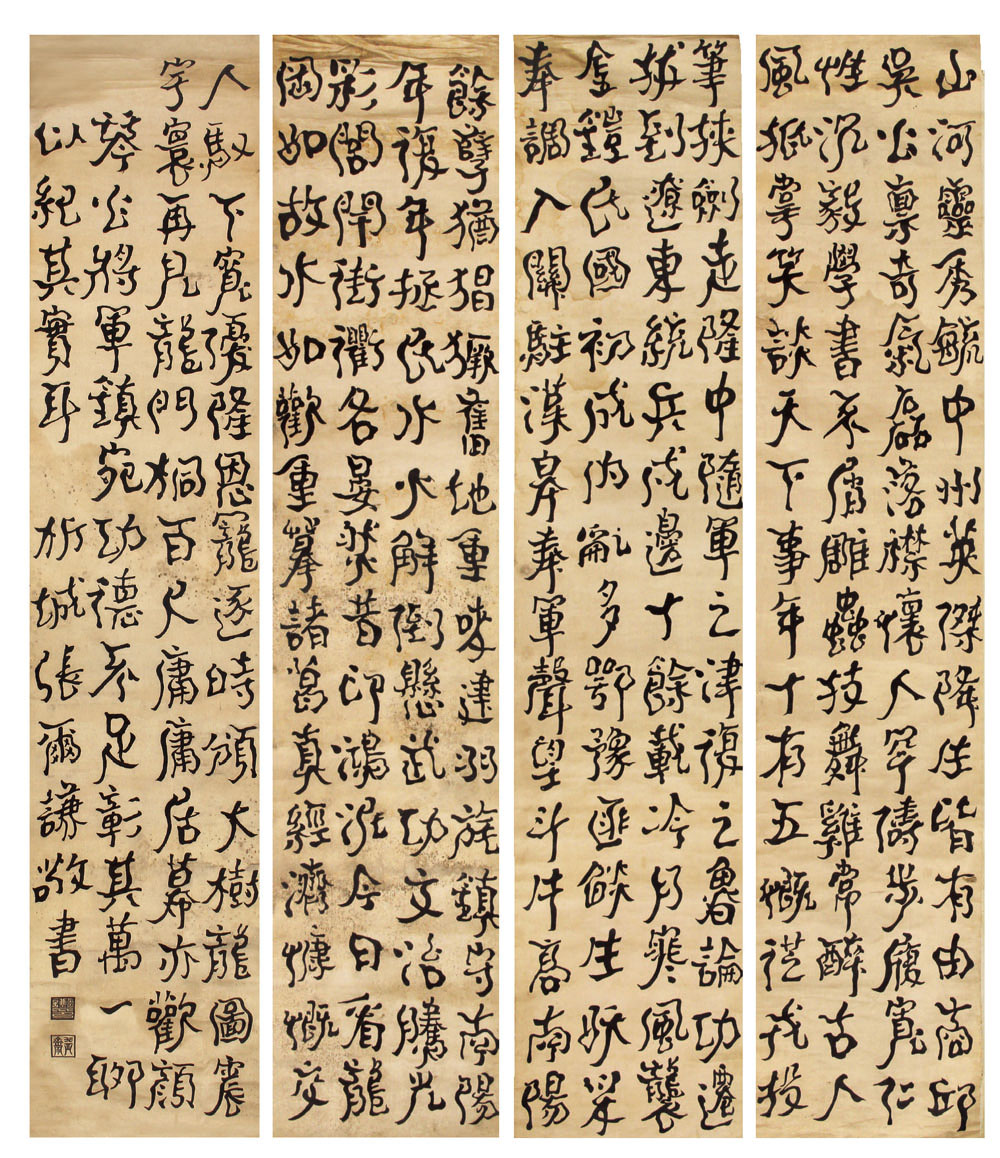 山河靈秀毓中州英傑降生皆有由商邱
吳公禀奇氣磊落襟懷人罕儔步履寬仁
性沉毅學書不屑雕蟲技舞雞常醉古人
風抵掌笑談天下事年十有五慨從戎投
筆挾劍走隆中隨軍之津復之魯論功遷
拔到遼東統兵戍邊十餘載冷月寒風襲
金鎧民國初成內亂多鄂豫匪燄生
奉調入關駐漢皋奉軍聲望斗牛高南陽
餘孽猶猖獗舊地重來建羽旄鎮守南陽
年復年拯民水火解倒懸武功文治騰光
彩閭開街衢各晏然昔印鴻泥今日看龍
岡如故水如歡重摹諸葛真經濟慷慨交
人馭下寬優隆恩寵逐時頒大樹龍圖震
宇寰再見龍門桐百尺庸庸居幕亦歡顏
琴公將軍鎮宛功德不足彰其萬一聊
以紀其實耳 柘城張爾謙敬書